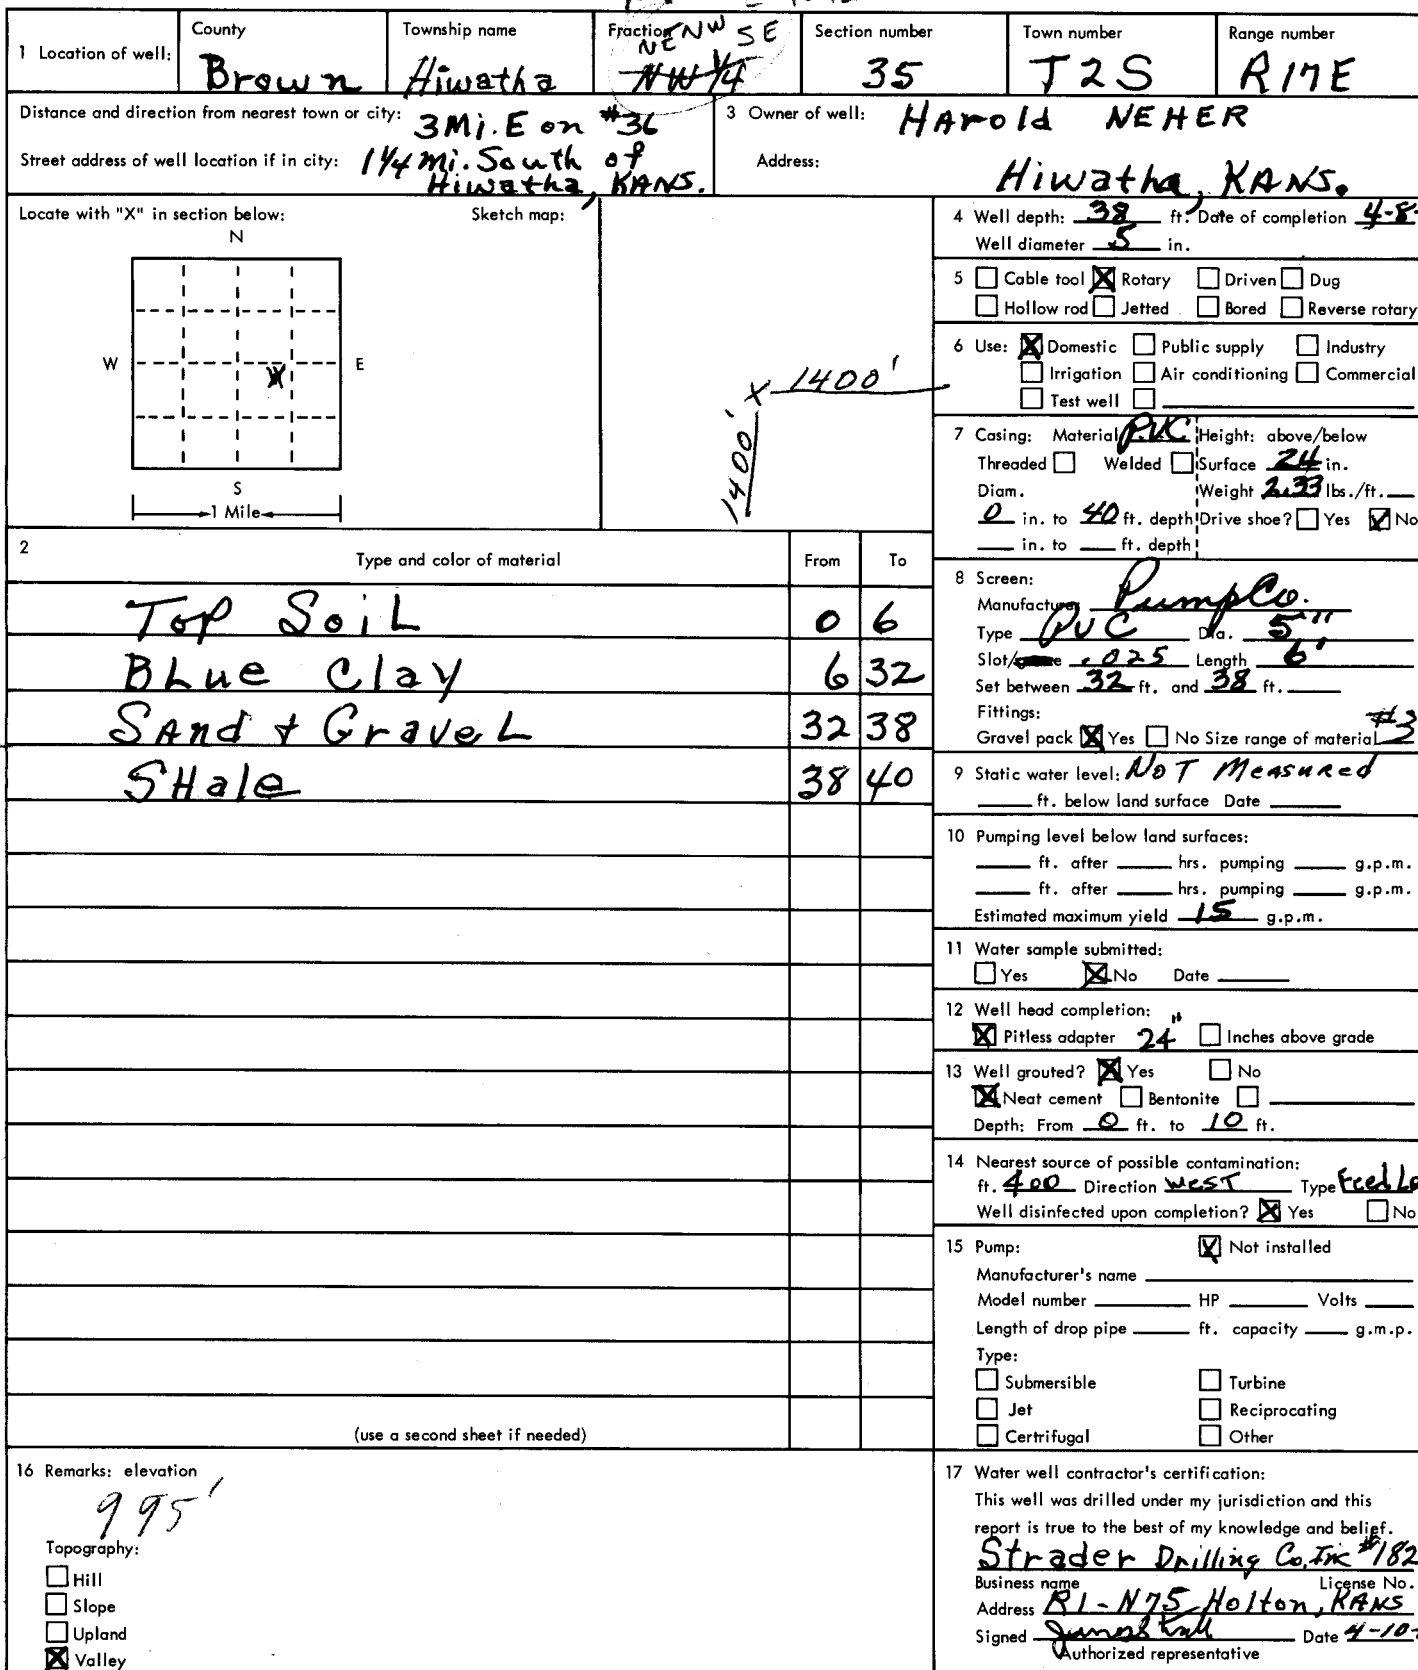 1 Location of well:
County
Brown
Township name
Hiwatha
Fraction
NE NW SE
NW 1/4
Section number
35
Town number
T2S
Range number
R17E
Distance and direction from nearest town or city: 3 Mi. E on #36
Street address of well location if in city: 1 1/4 Mi. South of
Hiwatha, KANS.
3 Owner of well: HArold NEHER
Address:
Hiwatha, KANS.
Locate with "X" in section below:
Sketch map:
N
W
E
S
1 Mile
X
1400' X 1400'
4 Well depth: 38 ft. Date of completion 4-8-
Well diameter 5 in.
5 Cable tool X Rotary Driven Dug
Hollow rod Jetted Bored Reverse rotary
6 Use: X Domestic Public supply Industry
Irrigation Air conditioning Commercial
Test well
7 Casing: Material P.V.C Height: above/below
Threaded Welded Surface 24 in.
Diam. Weight 2.33 lbs./ft.
0 in. to 40 ft. depth Drive shoe? Yes X No
in. to ft. depth
2
Type and color of material From To
Top SoiL 0 6
BLue Clay 6 32
SAnd + GraveL 32 38
SHale 38 40
(use a second sheet if needed)
8 Screen:
Manufacturer PumpCo.
Type PVC Dia. 5"
Slot/ .025 Length 6'
Set between 32 ft. and 38 ft.
Fittings: #3
Gravel pack X Yes No Size range of material
9 Static water level: NOT MeasuRed
ft. below land surface Date
10 Pumping level below land surfaces:
ft. after hrs. pumping g.p.m.
ft. after hrs. pumping g.p.m.
Estimated maximum yield 15 g.p.m.
11 Water sample submitted:
Yes X No Date
12 Well head completion:
X Pitless adapter 24" Inches above grade
13 Well grouted? X Yes No
X Neat cement Bentonite
Depth: From 0 ft. to 10 ft.
14 Nearest source of possible contamination:
ft. 400 Direction WesT Type Feed Lo
Well disinfected upon completion? X Yes No
15 Pump: X Not installed
Manufacturer's name
Model number HP Volts
Length of drop pipe ft. capacity g.m.p.
Type:
Submersible Turbine
Jet Reciprocating
Certrifugal Other
16 Remarks: elevation
995'
Topography:
Hill
Slope
Upland
X Valley
17 Water well contractor's certification:
This well was drilled under my jurisdiction and this
report is true to the best of my knowledge and belief.
Strader Drilling Co, Inc #182
Business name License No.
Address R1-N75 Holton, KANS
Signed Date 4-10-
Authorized representative